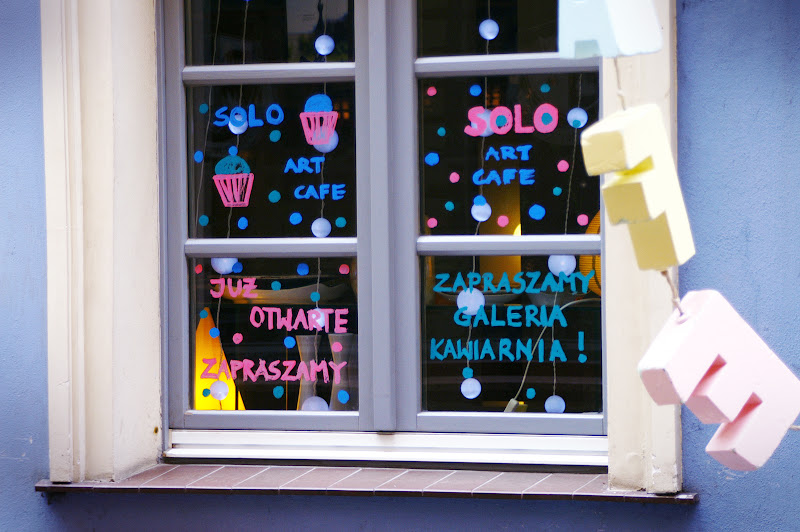 SOLO
ART
CAFE
SOLO
ART
CAFE
JUŻ
OTWARTE
ZAPRASZAMY
ZAPRASZAMY
GALERIA
KAWIARNIA!
A
F
E